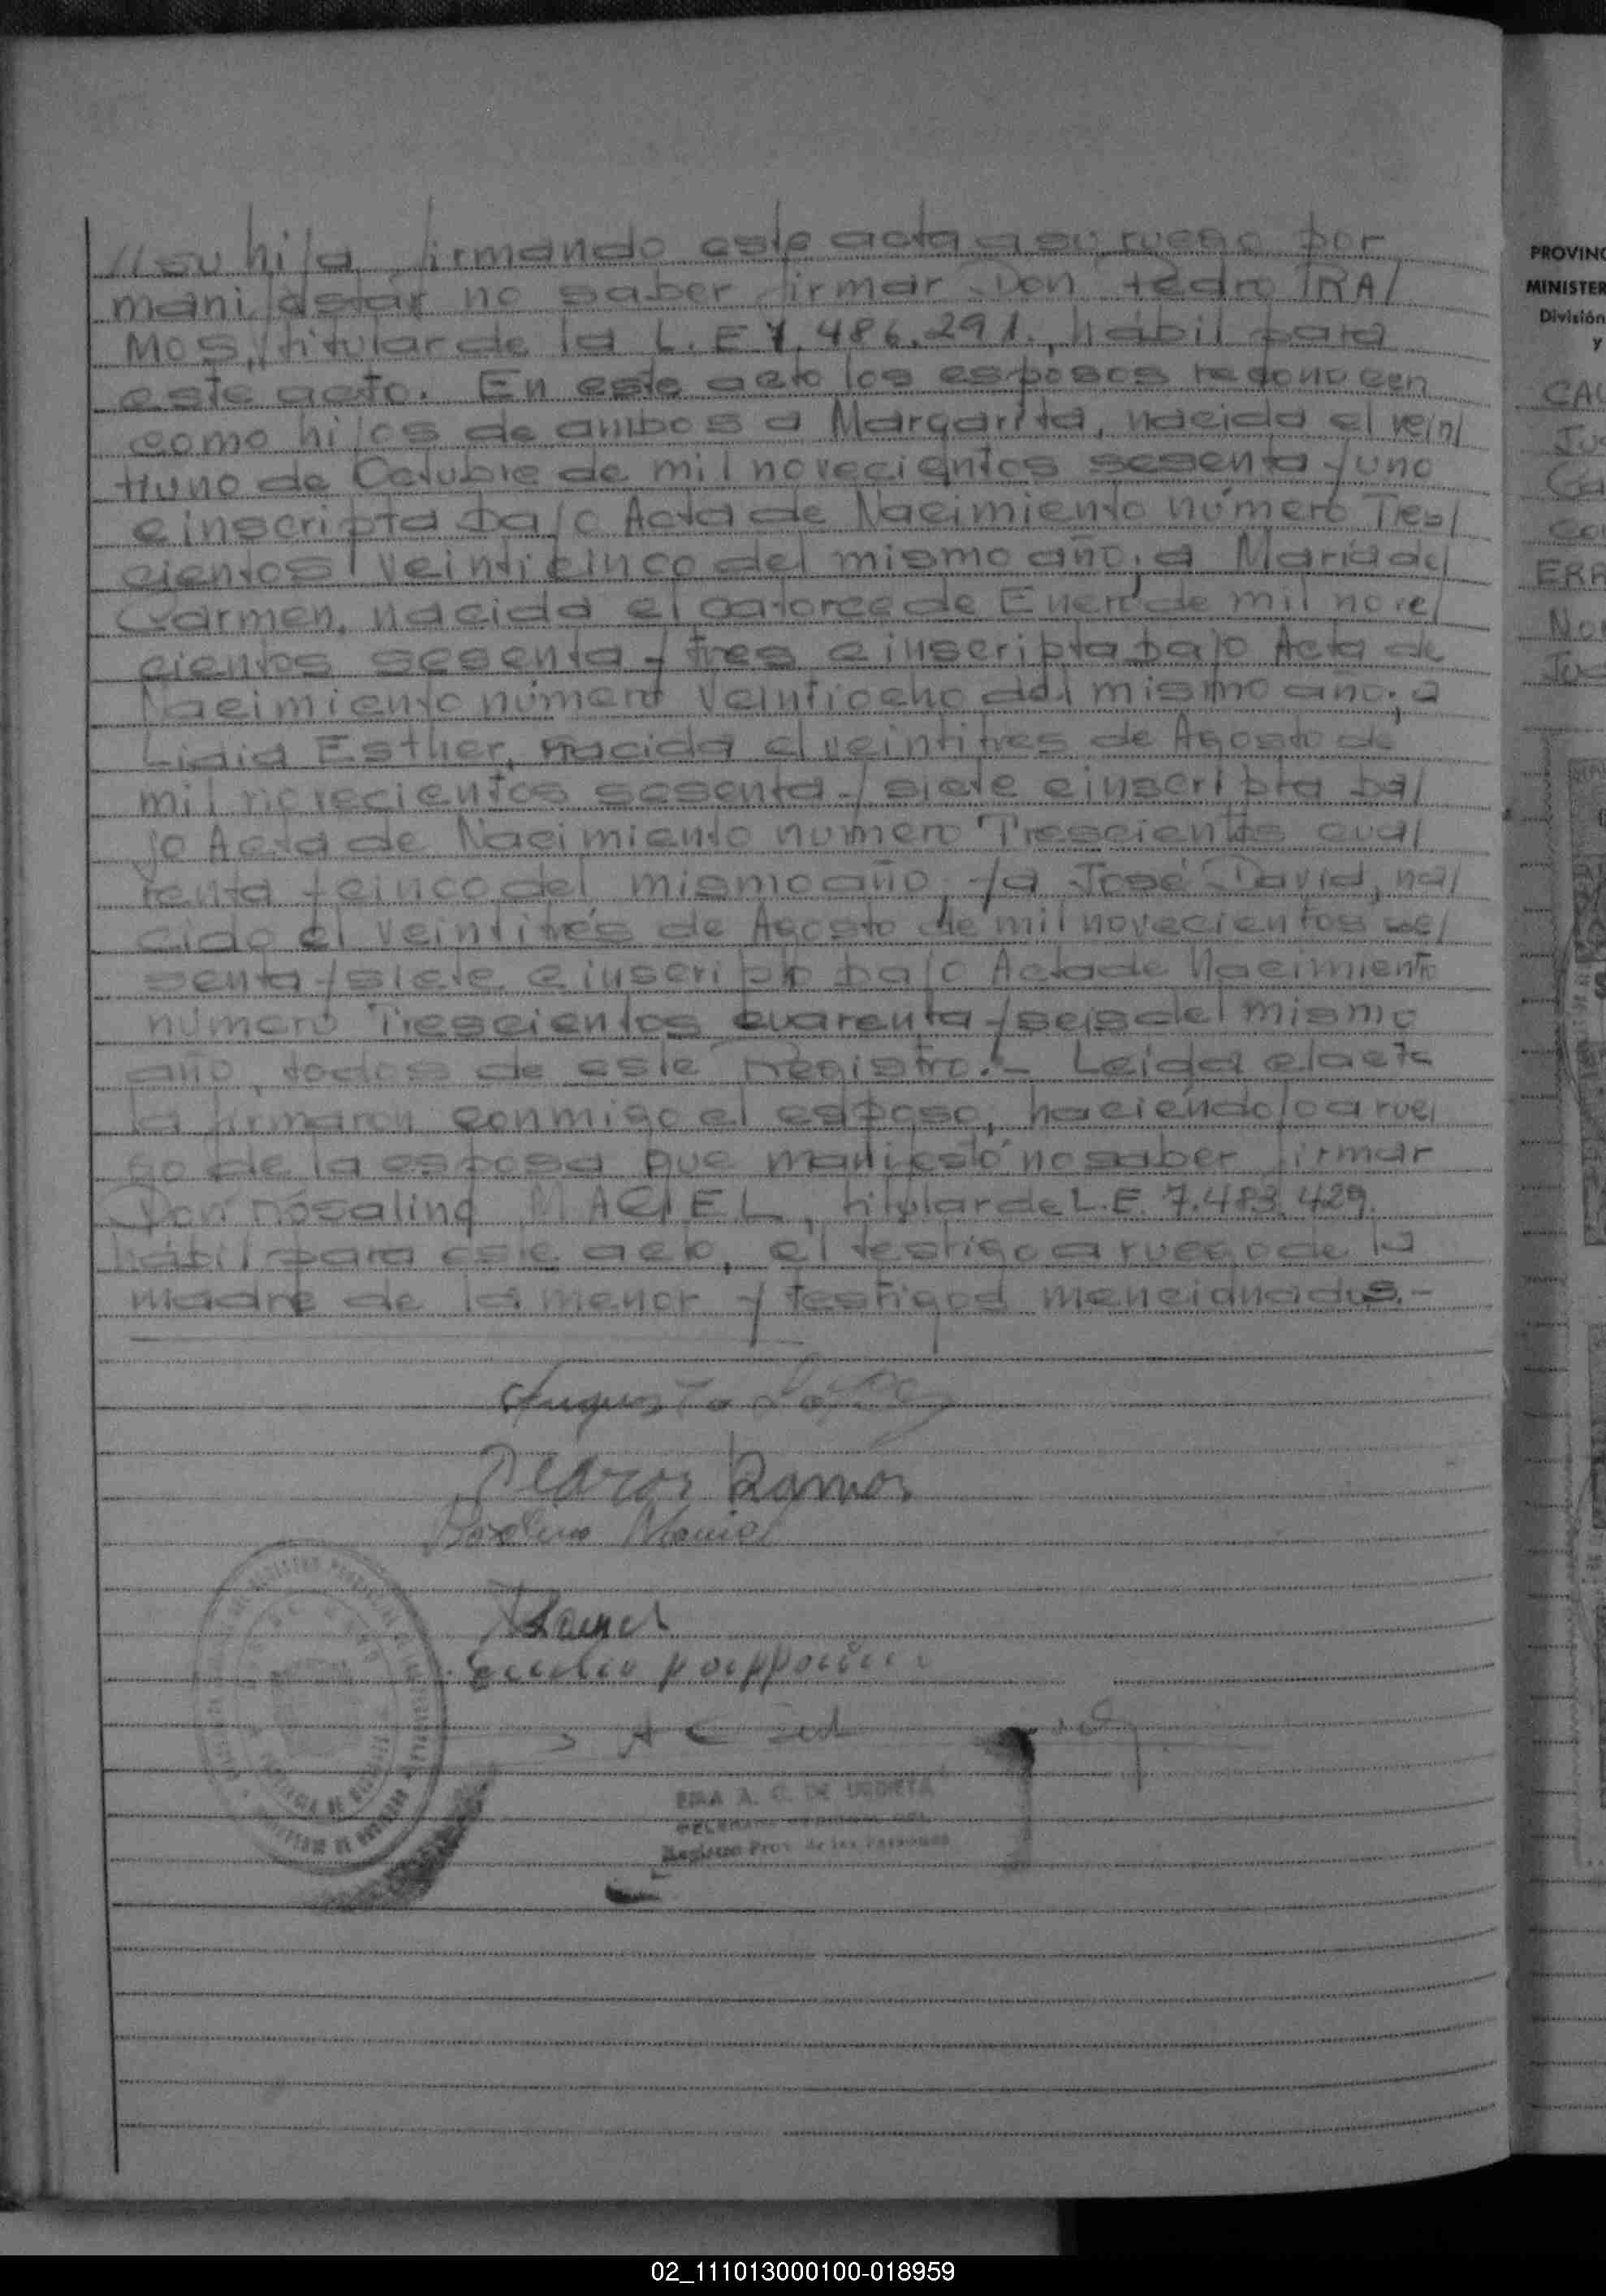 //su hija, firmando este acta a su ruego por
manifestar no saber firmar Don Pedro RA/
MOS, titular de la L.E 7.486.291., hábil para
este acto. En este acto los esposos reconocen
como hijos de ambos a Margarita, nacida el vein/
tiuno de Octubre de mil novecientos sesenta y uno
e inscripta bajo Acta de Nacimiento número Tres/
cientos veinticinco del mismo año; a María del
Carmen, nacida el catorce de Enero de mil nove/
cientos sesenta y tres e inscripta bajo Acta de
Nacimiento número Veintiocho del mismo año; a
Lidia Esther, nacida el veintitres de Agosto de
mil novecientos sesenta y siete e inscripta ba/
jo Acta de Nacimiento numero Trescientos cua/
renta y cinco del mismo año, y a José David, na/
cido el veintitrés de Agosto de mil novecientos se/
senta y siete e inscripto bajo Acta de Nacimiento
número Trescientos cuarenta y seis del mismo
año, todos de este Registro.- Leida el acta
la firmaron conmigo el esposo, haciéndolo a rue/
go de la esposa que manifestó no saber firmar
Don Rosalino MACIEL, titular de L.E. 7.483.429.
hábil para este acto, el testigo a ruego de la
madre de la menor y testigos mencionados.-
Augusto
Ramos
Rosalino Maciel
A. C. DE URDIETA
Registro Prov. de las Personas
PROVINC
MINISTER
División
y
CAU
Ju
Ga
ERR
No
02_111013000100-018959